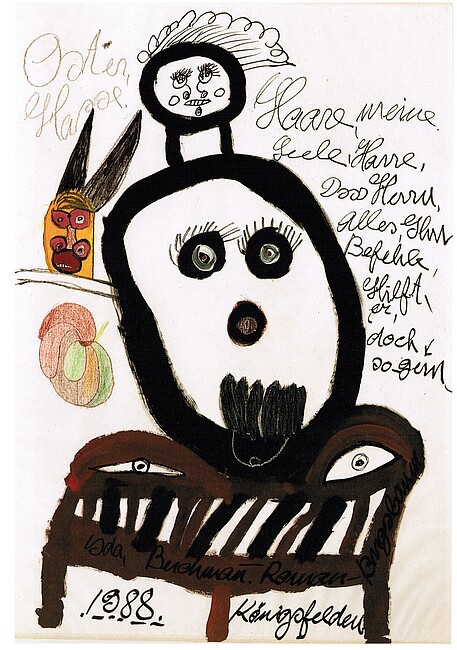 Ostern,
Hasse.
Haare, meine
Seele, Harre,
Dass Herrn,
Alles, Ihm
Befehle,
Hilft,
er,
doch
so gern
Ida, Buchmann. Roman-
.1988.
Königsfelden